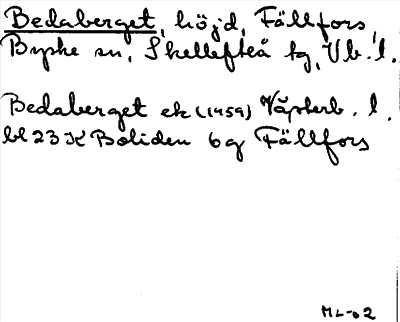 Bedaberget, höjd, Fällfors,
Byske sn, Skellefteå tg, Vb. l.
Bedaberget ek (1959) Väster b. l.
bl 23 K Boliden 6g Fällfors
ML-62